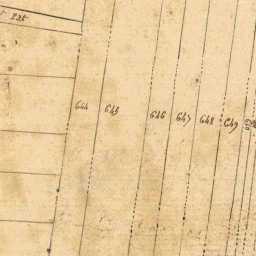 644 645 646 647 648 649